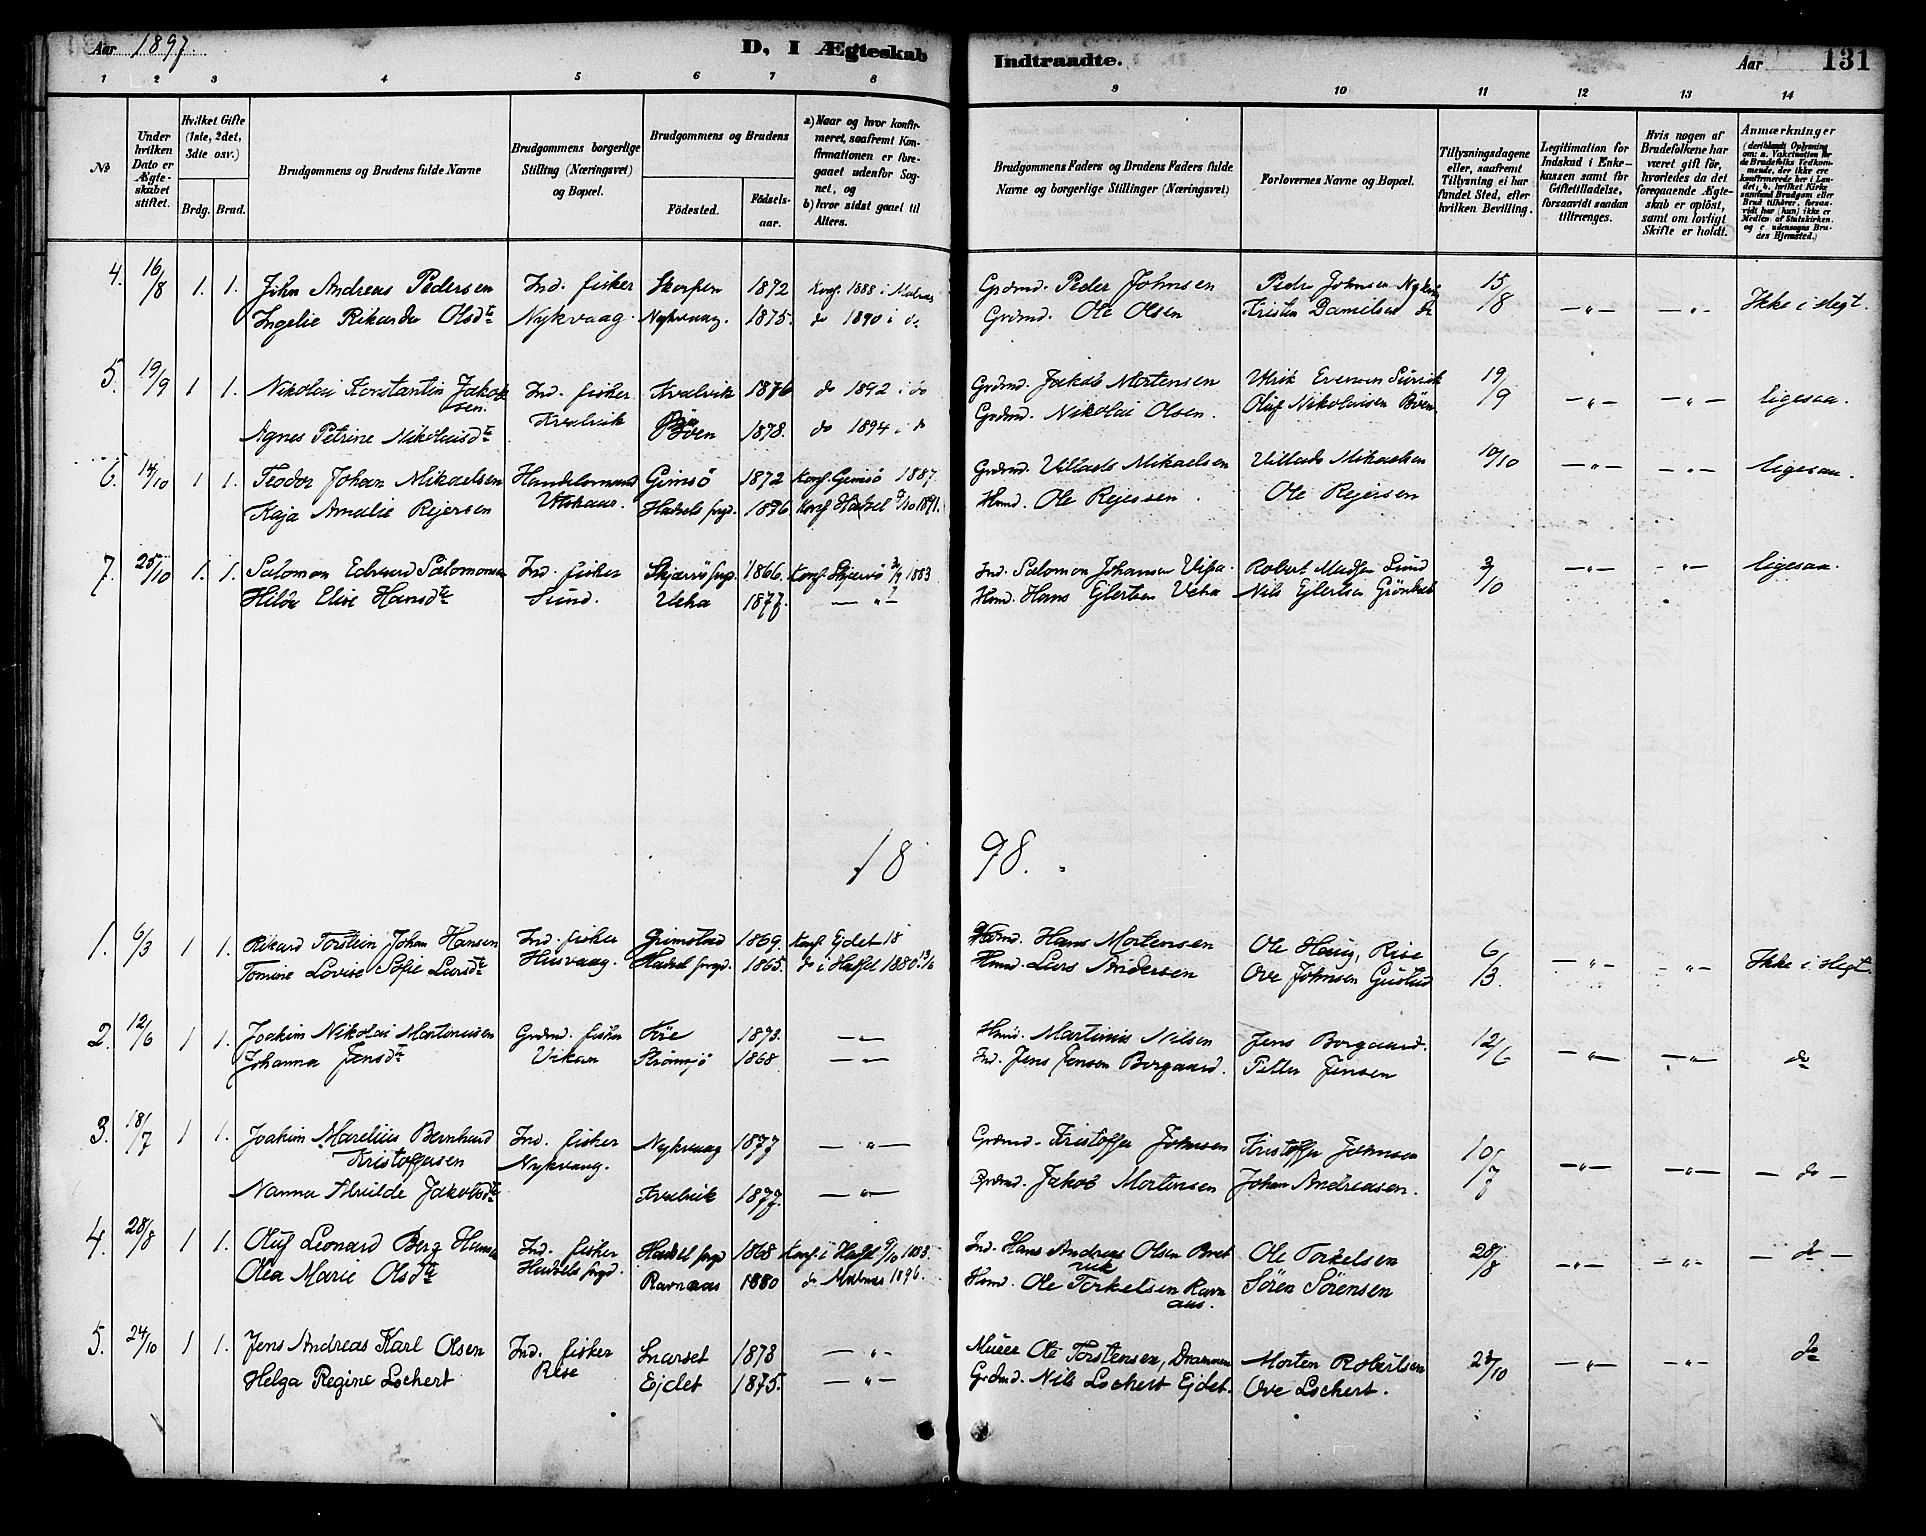 Aar 1897. D, I Ægteskab Indtraadte. Aar 131
1 2 3 4 5 6 7 8 9 10 11 12 13 14
No
Under hvilken Dato er Ægteskabet stiftet.
Hvilket Gifte (1ste, 2det, 3die osv.)
Brdg. Brud.
Brudgommens og Brudens fulde Navne
Brudgommens borgerlige Stilling (Næringsvei) og Bopæl.
Brudgommens og Brudens
Födested. Födselsaar.
a) Naar og hvor konfirmeret, saafremt Konfirmationen er foregaaet udenfor Sognet, og
b) hvor sidst gaaet til Alters.
Brudgommens Faders og Brudens Faders fulde Navne og borgerlige Stillinger (Næringsvei)
Forlovernes Navne og Bopæl.
Tillysningsdagene eller, saafremt Tillysning ei har fundet Sted, efter hvilken Bevilling.
Legitimation for Indskud i Enkekassen samt for Giftetilladelse, forsaavidt saadan tiltrænges.
Hvis nogen af Brudefolkene har været gift för, hvorledes da det foregaaende Ægteskab er oplöst, samt om lovligt Skifte er holdt.
Anmærkninger (deriblandt Oplysning om: a. Vakcination for de Brudefolks Vedkommende, der ikke ere konfirmerede her i Landet; b. hvilket Kirkesamfund Brudgom eller Brud tilhörer, forsaavidt har (hun) ikke er Medlem af Statskirken. og c. udensogns Brudes Hjemsted.)
4. 16/8 1. 1. John Andreas Pedersen Ind. fisker Skorpen 1872 Konf. 1888 i Malnes Grdmd. Peder Johnsen Peder Johnsen 15/8 —„— —„— Ikke i slegt.
Ingelie Rikarda Olsdtr Nykvaag. Nykvaag. 1875. do 1890 i do Grdmd. Ole Olsen Kristen Danielsen do
5. 19/9 1 1. Nikolai Konstantin Jakobsen. Ind. fisker Kvalvik 1876 do 1892 i do Grdmd. Jakob Mortensen Ulrik Evensen 19/9 —„— —„— ligesaa.
Agnes Petrine Nikolaisdtr Kvalvik Böen 1878. do 1894 i do Grdmd. Nikolai Olsen. Oluf Nikolaisen Böen.
6. 14/10 1 1. Teodor Johan Mikaelsen Handelsmand Gimsö 1872 Konf. Gimsö 1887 Grdmd. Villads Mikaelsen Villads Mikaelsen 10/10 —„— —„— ligesaa.
Kaja Amalie Rejersen Hadsels prgd. 1876 Konf. Hadsel 1891. Hsmd. Ole Rejersen. Ole Rejersen
7. 25/10 1. 1. Salomon Edvard Salomonsen Ind. fisker Skjærvö prgd. 1866. Konf. Skjærvö 1883 Ind. Salomon Johansen Robert Madsen Sund 3/10 —„— —„— ligesaa.
Hilda Elise Hansdtr Sund. Veha 1877. —„— Hsmd. Hans Eilertsen Veha Nils Eilertsen
18 98.
1. 6/3 1 1. Rikard Torstein Johan Hansen Ind. fisker Grimstad 1869. Konf. Ejdet 18 Hsmd. Hans Mortensen Ole Haug, Rise 6/3. —„— —„— Ikke i slegt.
Tomine Lovise Sofie Larsdtr Husvaag. Hadsel prgd. 1865. do i Hadsel 1880. Hsmd. Lars Andersen Ove Johnsen
2. 12/6 1 1. Joakim Nikolai Martinusen Grdmd. fisker 1873. —„— Hsmd. Martinus Nilsen Jens Borgaard. 12/6 —„— —„— do
Johanna Jensdtr Vikan Strömsjö 1868 —„— Ind. Jens Jensen Borgaard. Petter Jensen
3. 18/7 1 1. Joakim Marelius Bernhard Kristoffersen Ind. fisker Nykvaag 1877 —„— Grdmd. Kristoffer Johnsen Kristoffer Johnsen 10/7 —„— —„— — do —
Nanna Alvilde Jakobsdtr Nykvaag. Kvalvik 1877. —„— Grdmd. Jakob Mortensen Johan Andreasen.
4. 28/8 1 1. Oluf Leonard Berg Hansen Ind. fisker Hadsel prgd 1868 Konf. i Hadsel 1883. Ind. Hans Andreas Olsen Ole Torkelsen 28/8 —„— —„— — do —
Olea Marie Olsdtr Hadsels prgd. Ravnaas 1880 do Malnes 1896. Hsmd. Ole Torkelsen Ravnaas. Sören Sörensen
5. 24/10 1 1. Jens Andreas Karl Olsen Ind. fisker Snarset 1873 —„— Murer Ole Torstensen, Drammen Morten Robertsen 23/10 —„— —„— do
Helga Regine Lochert Rise Ejdet 1875. —„— Grdmd. Nils Lochert Ejdet. Ove Lochert.